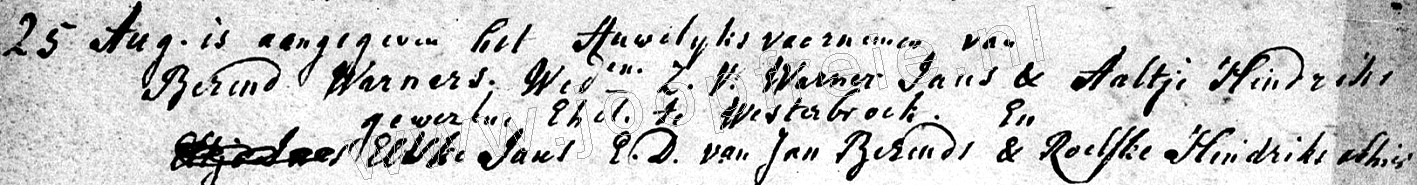 25 Aug. is aangegeven het Huwelyks voornemen van
Berend Warners. Wedn. Z. V. Warner Jans & Aaltje Hindriks
gewezene Ehel. te Westerbroek. En
Jans E. D. van Jan Berends & Roelfke Hindriks
www.joophele.nl